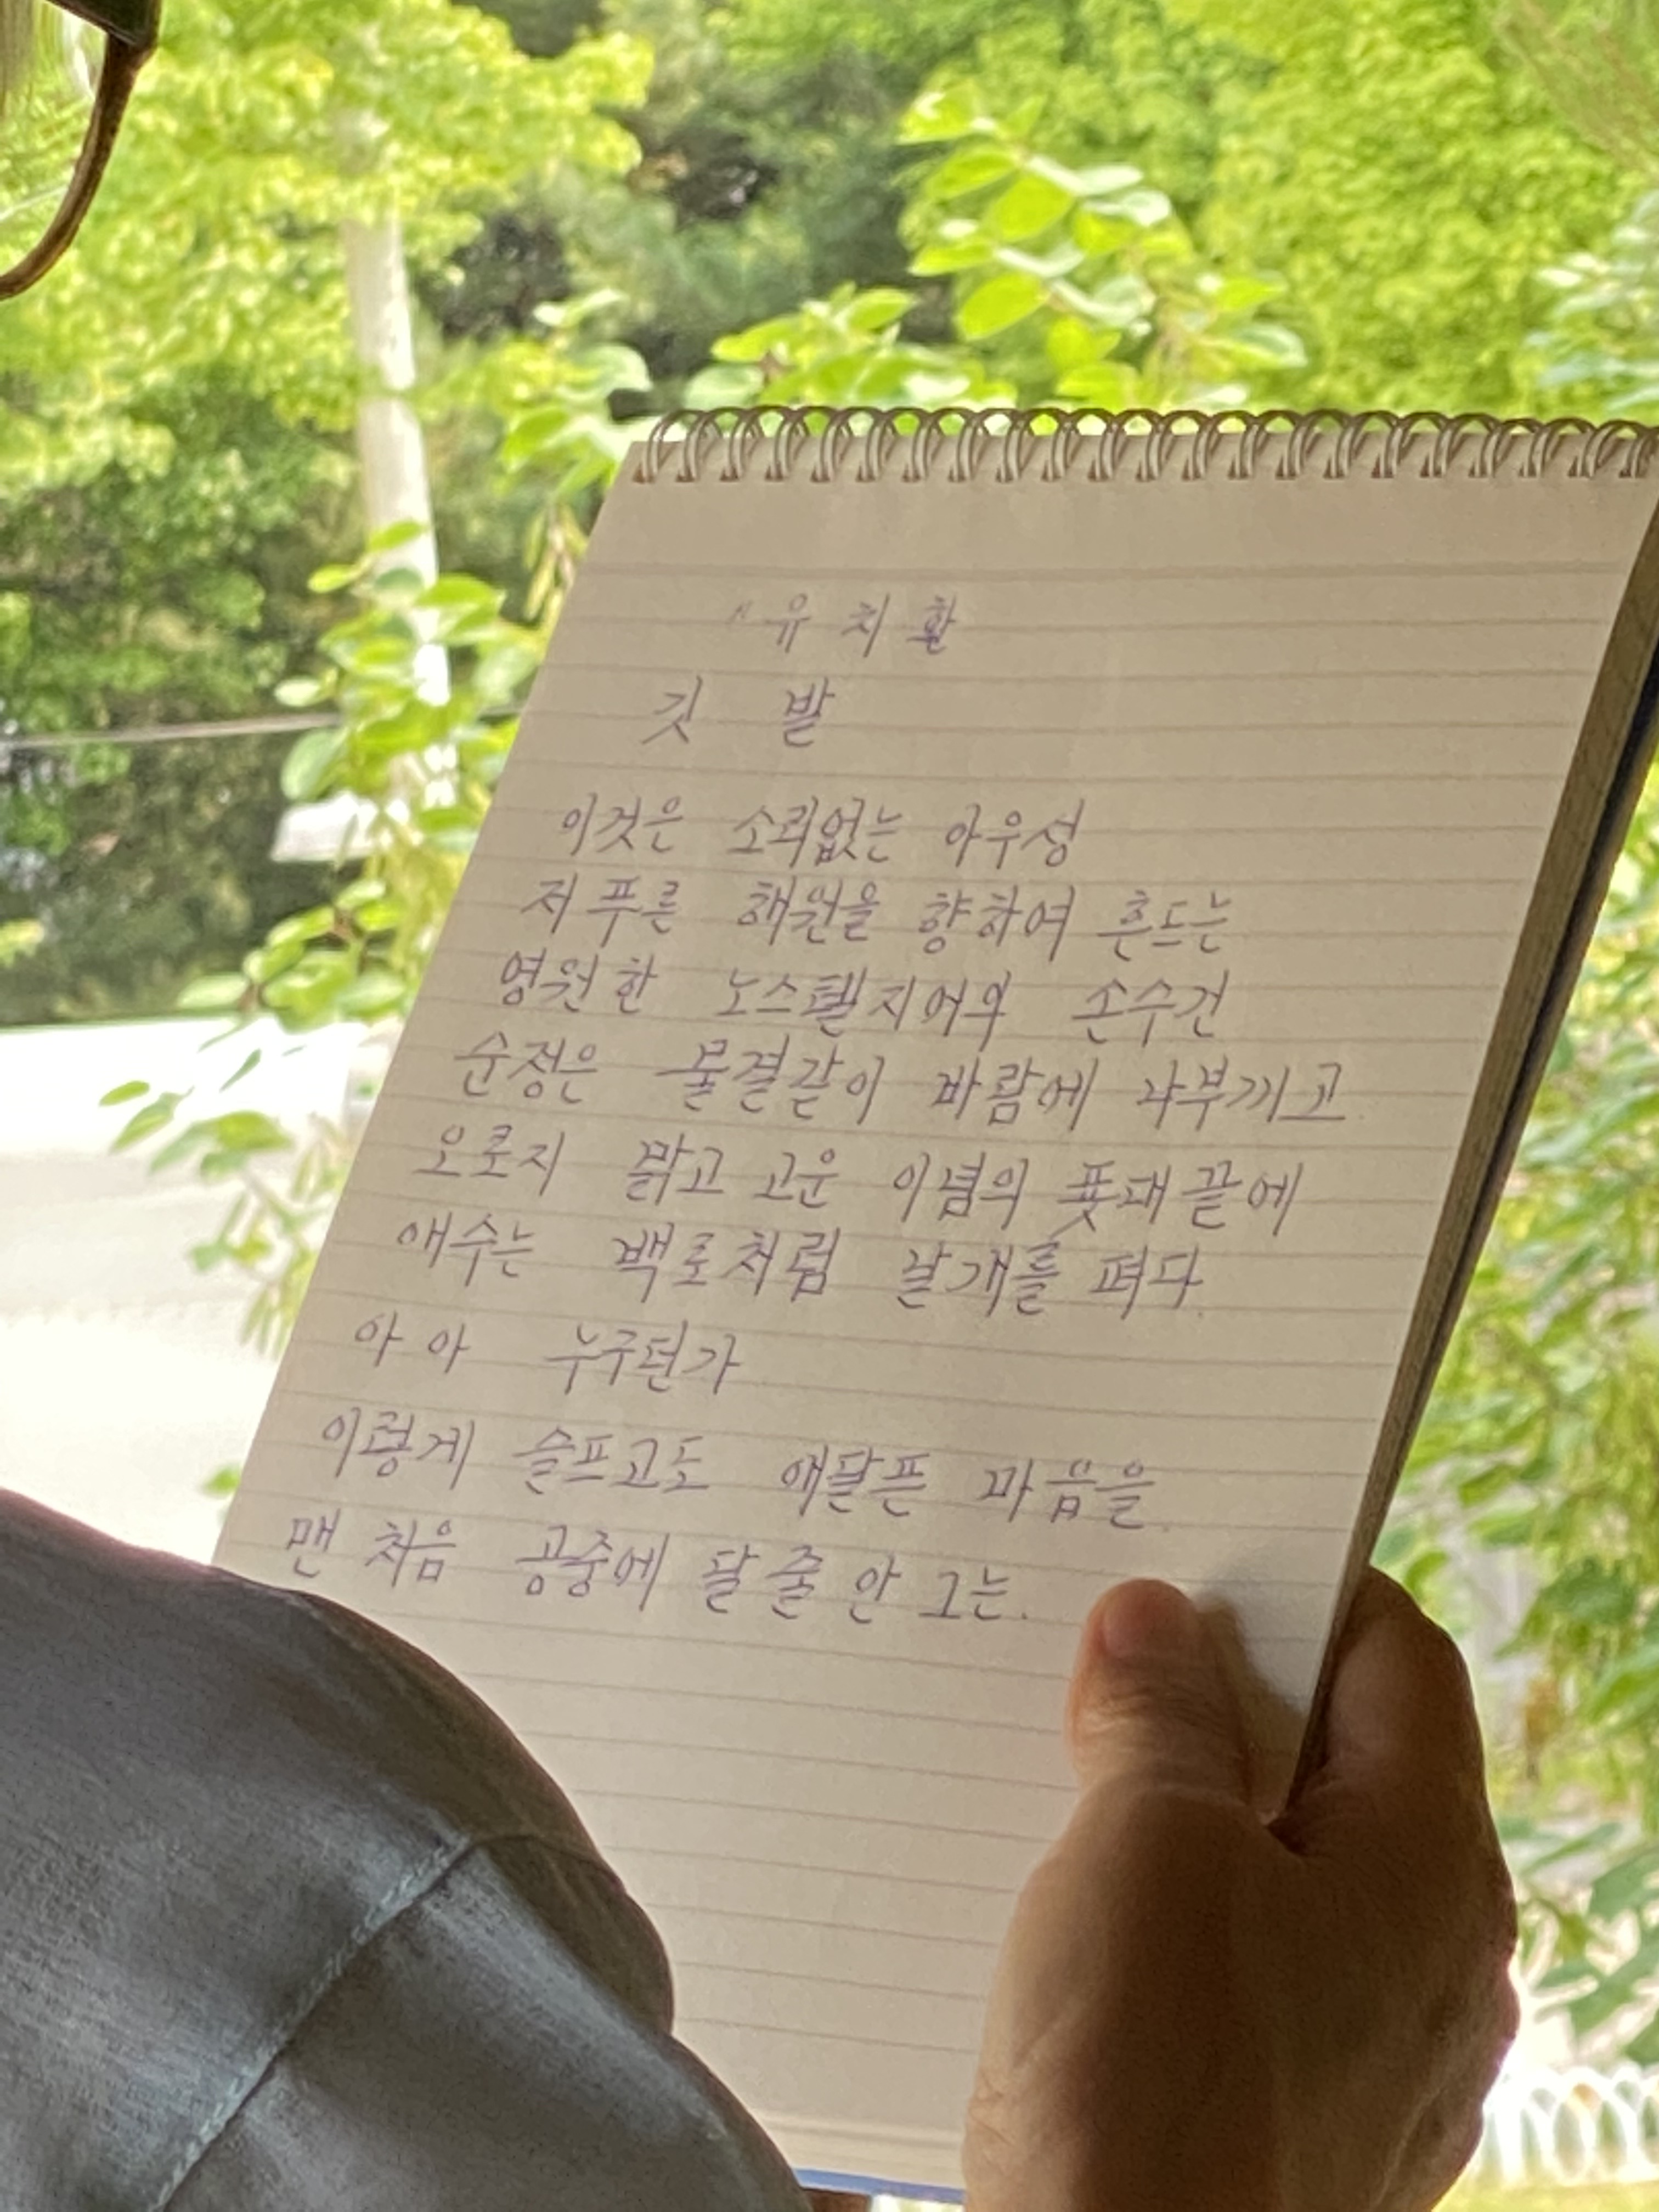 "유치환
깃 발
이것은 소리없는 아우성
저 푸른 해원을 향하여 흔드는
영원한 노스텔지어의 손수건
순정은 물결같이 바람에 나부끼고
오로지 맑고 고운 이념의 푯대 끝에
애수는 백로처럼 날개를 펴다.
아 아 누구던가
이렇게 슬프고도 애달픈 마음을
맨 처음 공중에 달 줄 안 그는.